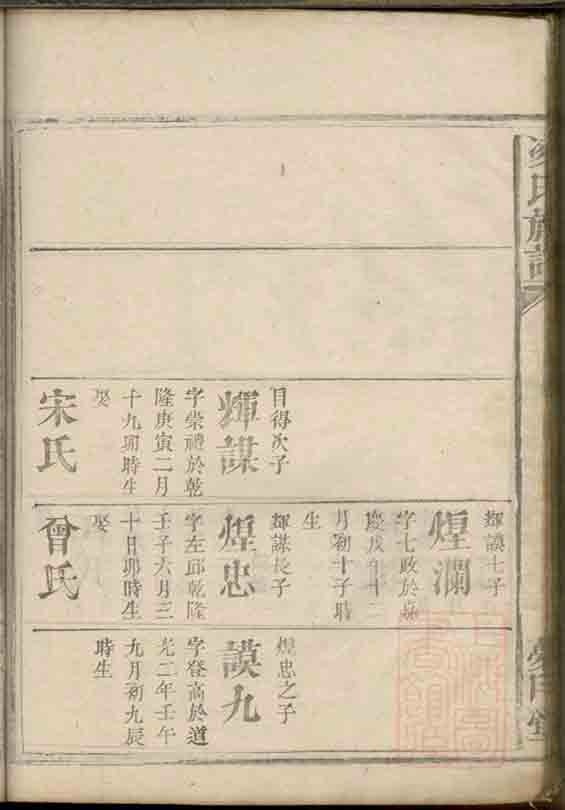 氏族譜
目得次子
輝謀
字崇禮於乾
隆庚寅二月
十九卯時生
娶
宋氏
輝謨七子
煌瀾
字七政於嘉
慶戊午十二
月初十子時
生
輝謀長子
煌忠
字左邱乾隆
壬子六月三
十日卯時生
娶
曾氏
煌忠之子
謨九
字登高於道
光二年壬午
九月初九辰
時生